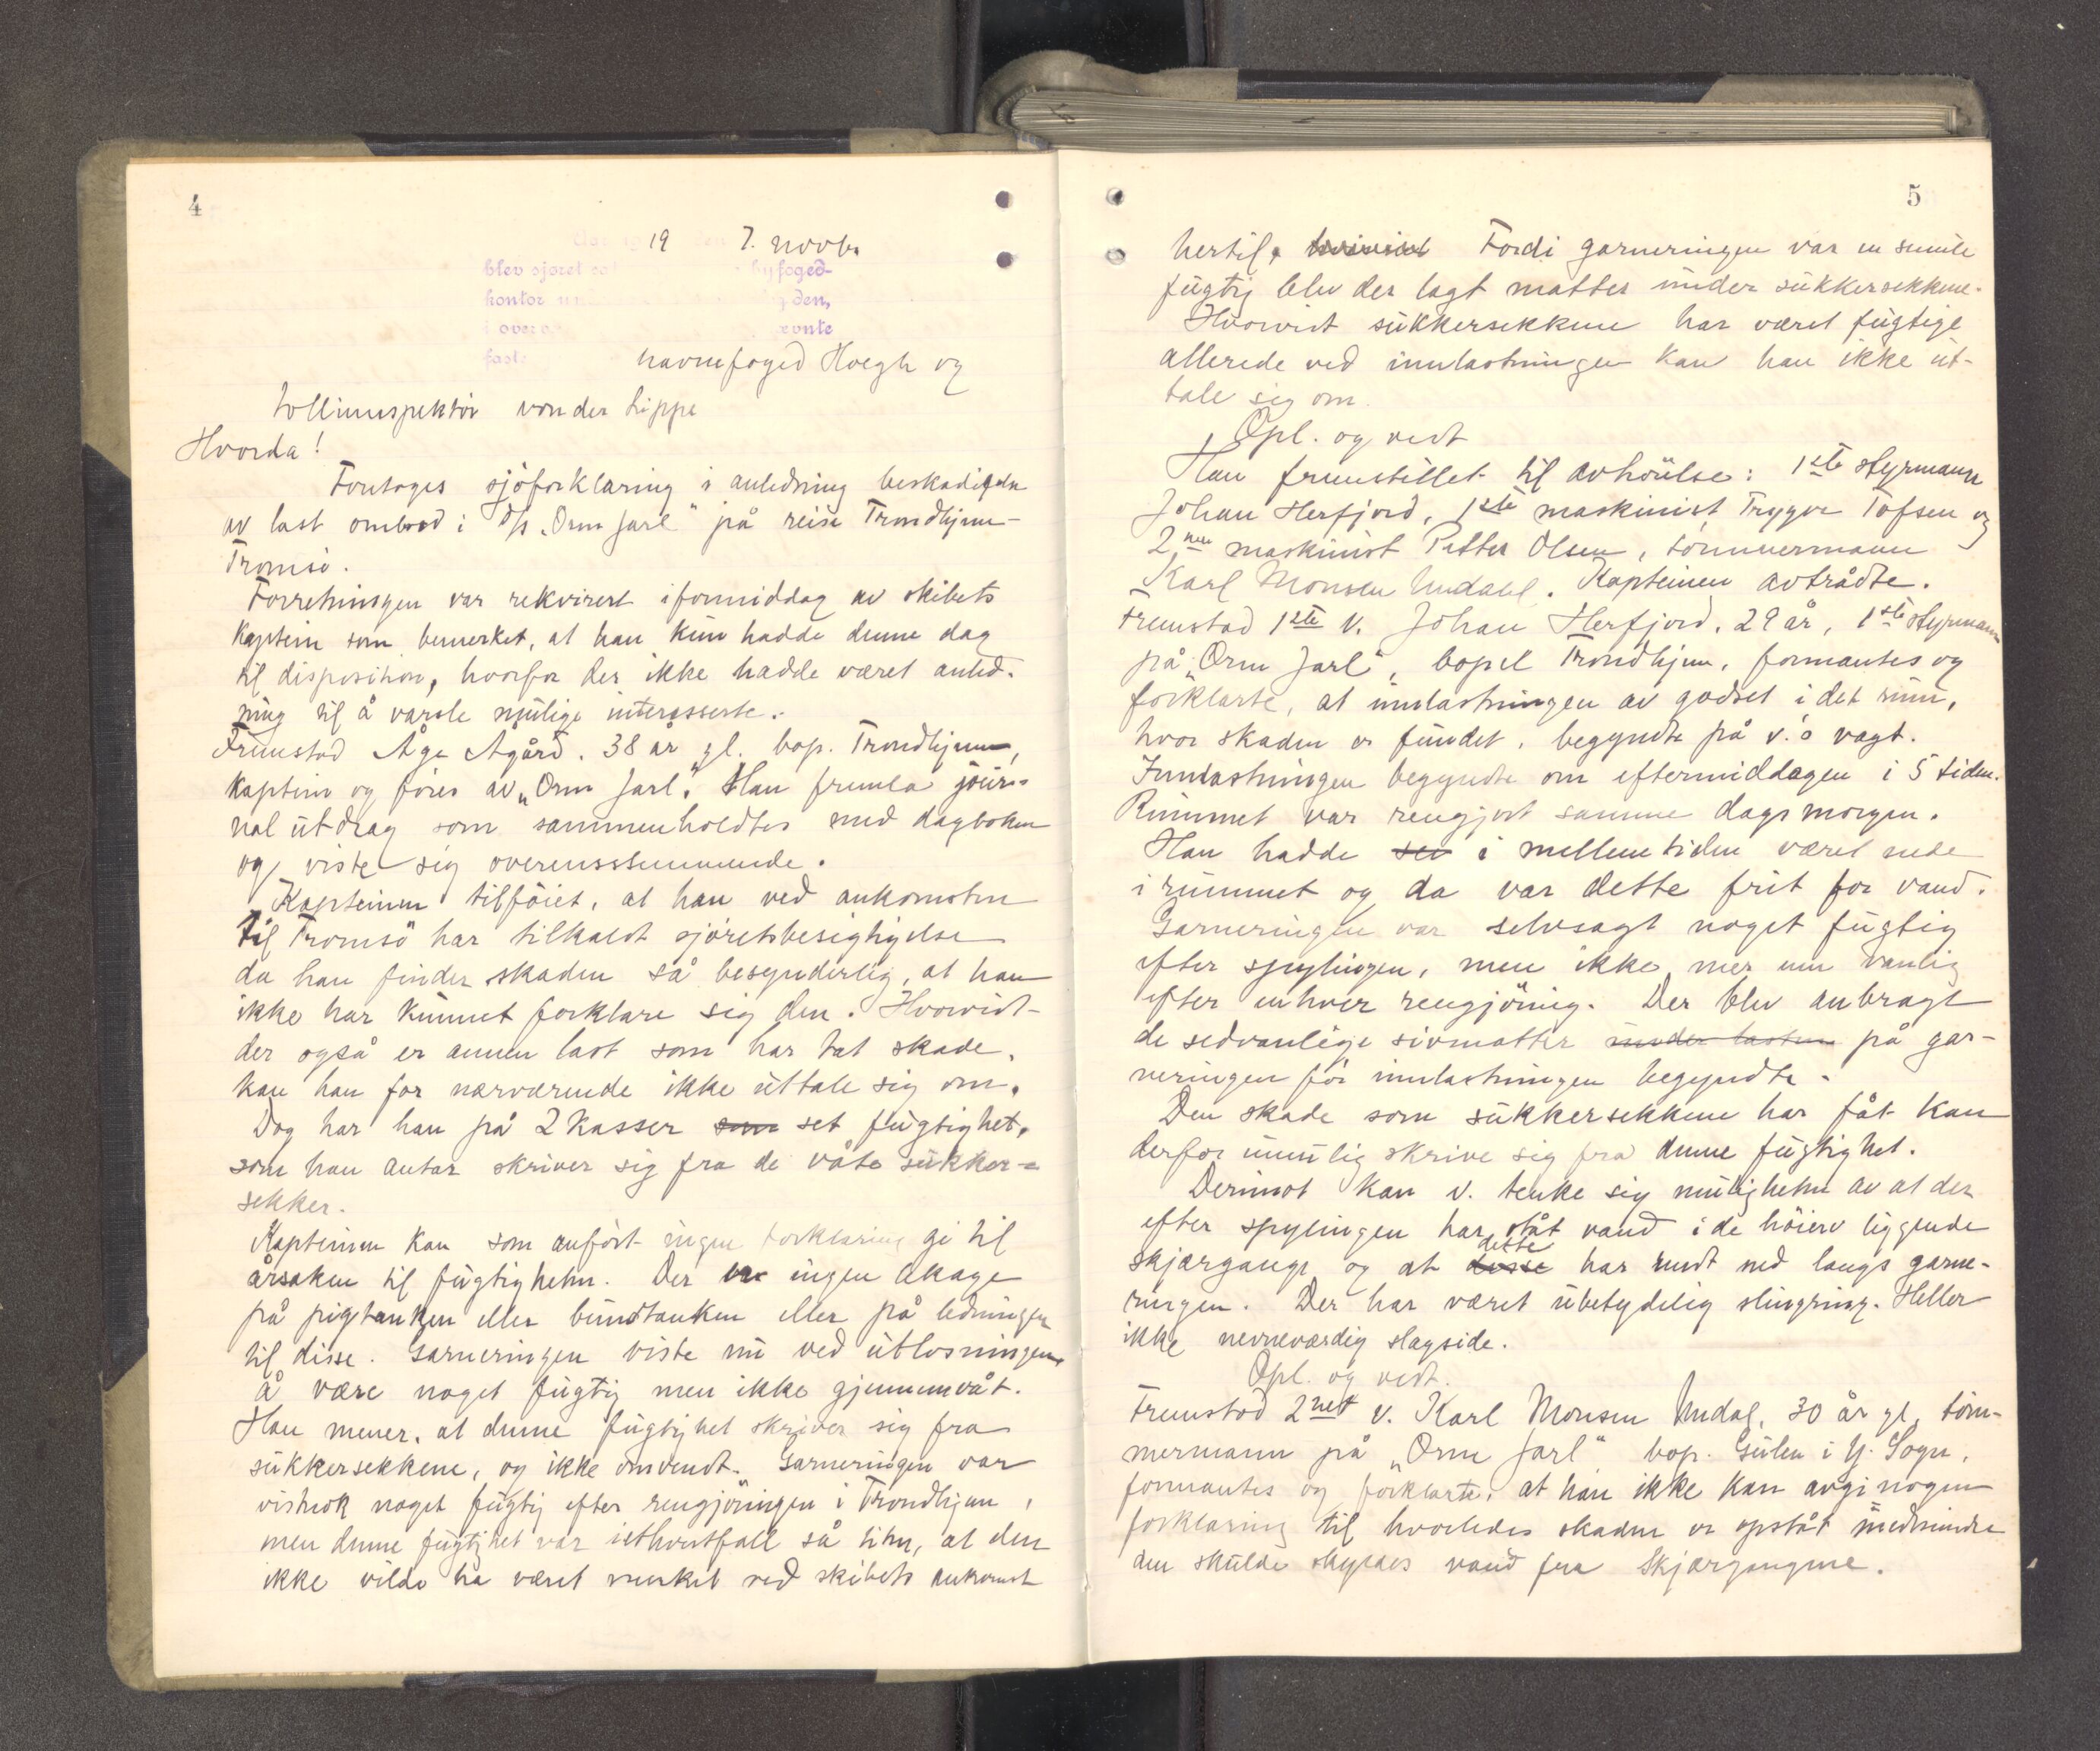 4
19 7. novb.
blev sjøret byfoged-
kontor den,
i over ævnte
faste havnefoged Hoegh og
tollinnspektør von der Lippe
Hvorda!
Foretoges sjøforklaring i anledning beskadigelse
av last ombord i D/s "Orm Jarl" på reise Trondhjem-
Tromsø.
Forretningen var rekvirert i formiddag av skibets
kaptein som bemerket, at han kun hadde denne dag
til disposition, hvorfor der ikke hadde været anled-
ning til å varsle mulige interesserte.
Fremstod Åge Ågård. 38 år gl. bop. Trondhjem,
kaptein og fører av "Orm Jarl". Han fremla jour-
nal utdrag som sammenholdtes med dagboken
og viste sig overensstemmende.
Kapteinen tilføiet, at han ved ankomsten
til Tromsø har tilkaldt sjøretsbesigtigelse
da han finder skaden så besynderlig, at han
ikke har kunnet forklare sig den. Hvorvidt
der også er annen last som har tat skade,
kan han for nærværende ikke uttale sig om.
Dog har han på 2 kasser som set fugtighet,
som han antar skriver sig fra de våte sukker-
sekker.
Kapteinen kan som anført ingen forklaring gi til
årsaken til fugtigheten. Der er ingen lekage
på pigtanken eller bundtanken eller på ledningen
til disse. Garneringen viste nu ved utlosningen
å være noget fugtig men ikke gjennemvåt.
Han mener, at denne fugtighet skriver sig fra
sukkersekkene, og ikke omvendt. Garneringen var
vistnok noget fugtig efter rengjøringen i Trondhjem,
men denne fugtighet var iethvertfall så liten, at den
ikke vilde ha været merket ved skibets ankomst
5
hertil. Fordi garneringen var en smule
fugtig blev der lagt matter under sukkersekkene.
Hvorvidt sukkersekkene har været fugtige
allerede ved innlastningen kan han ikke ut-
tale sig om.
Opl. og vedt
Han fremstillet til avhøielse: 1ste styrmann
Johan Herfjord, 1ste maskinist Trygve Tofsen og
2nen maskinist Petter Olsen, tømmermann
Karl Monsen Undahl. Kapteinen avtrådte.
Fremstod 1ste v. Johan Herfjord, 29 år, 1ste styrmann
på "Orm Jarl", bopel Trondhjem, formantes og
forklarte, at innlastningen av godset i det rum,
hvor skaden er fundet, begyndte på v.'s vagt.
Innlastningen begyndte om eftermiddagen i 5 tiden.
Rummet var rengjort samme dags morgen.
Han hadde sei i mellemtiden været nede
i rummet og da var dette frit for vand.
Garneringen var selvsagt noget fugtig
efter spylingen, men ikke mer enn vanlig
efter enhver rengjøring. Der blev anbragt
de sedvanlige sivmatter under lasten på gar-
neringen før innlastningen begyndte.
Den skade som sukkersekkene har fåt kan
derfor umulig skrive sig fra denne fugtighet.
Derimot kan v. tenke sig muligheten av at der
efter spylingen har ståt vand i de høiere liggende
skjærgange og at disse dette har rendt ned langs garne-
ringen. Der har været ubetydelig slingring. Heller
ikke nevneværdig slagside.
Opl. og vedt.
Fremstod 2net v. Karl Monsen Undal, 30 år gl. tøm-
mermann på "Orm Jarl" bop. Gulen i Y. Sogn,
formantes og forklarte, at han ikke kan avgi nogen
forklaring til hvorledes skaden er opståt medmindre
den skulde skyldes vand fra skjærgangene.